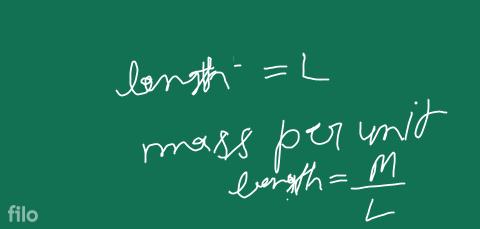 length = L
mass per unit
length = M/L
filo